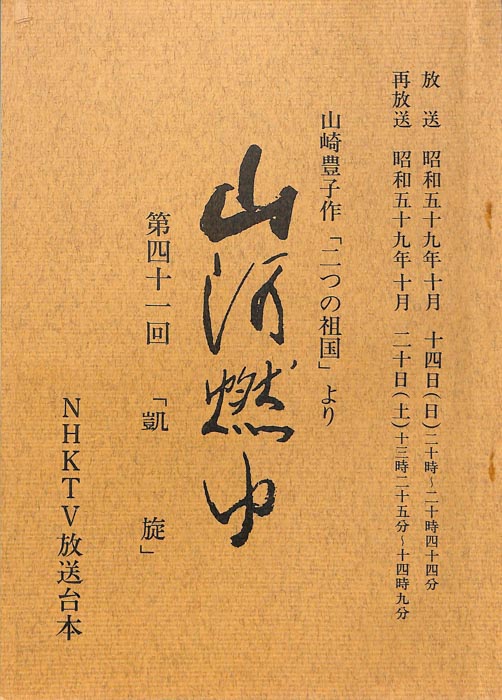 放送 昭和五十九年十月 十四日(日)二十時~二十時四十四分
再放送 昭和五十九年十月 二十日(土)十三時二十五分~十四時九分
山崎豊子作「二つの祖国」より
山河燃ゆ
第四十一回 「凱旋」
NHKTV放送台本